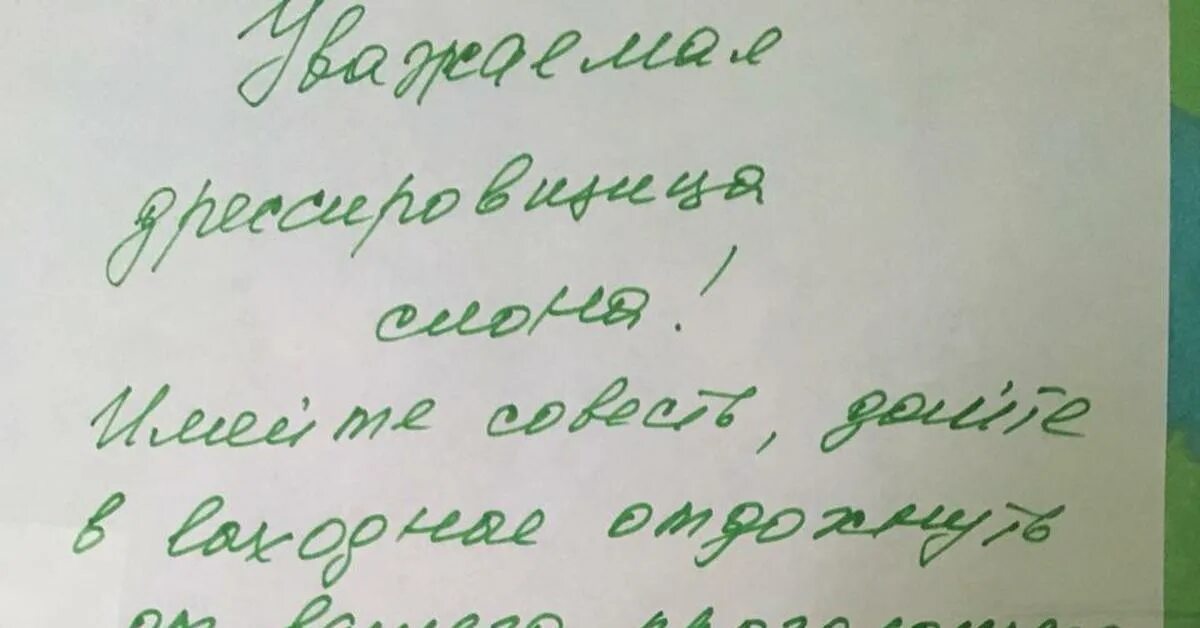 Уважаемая
дрессировщица
слона!
Имейте совесть, дайте
в выходные отдохнуть
от вашего